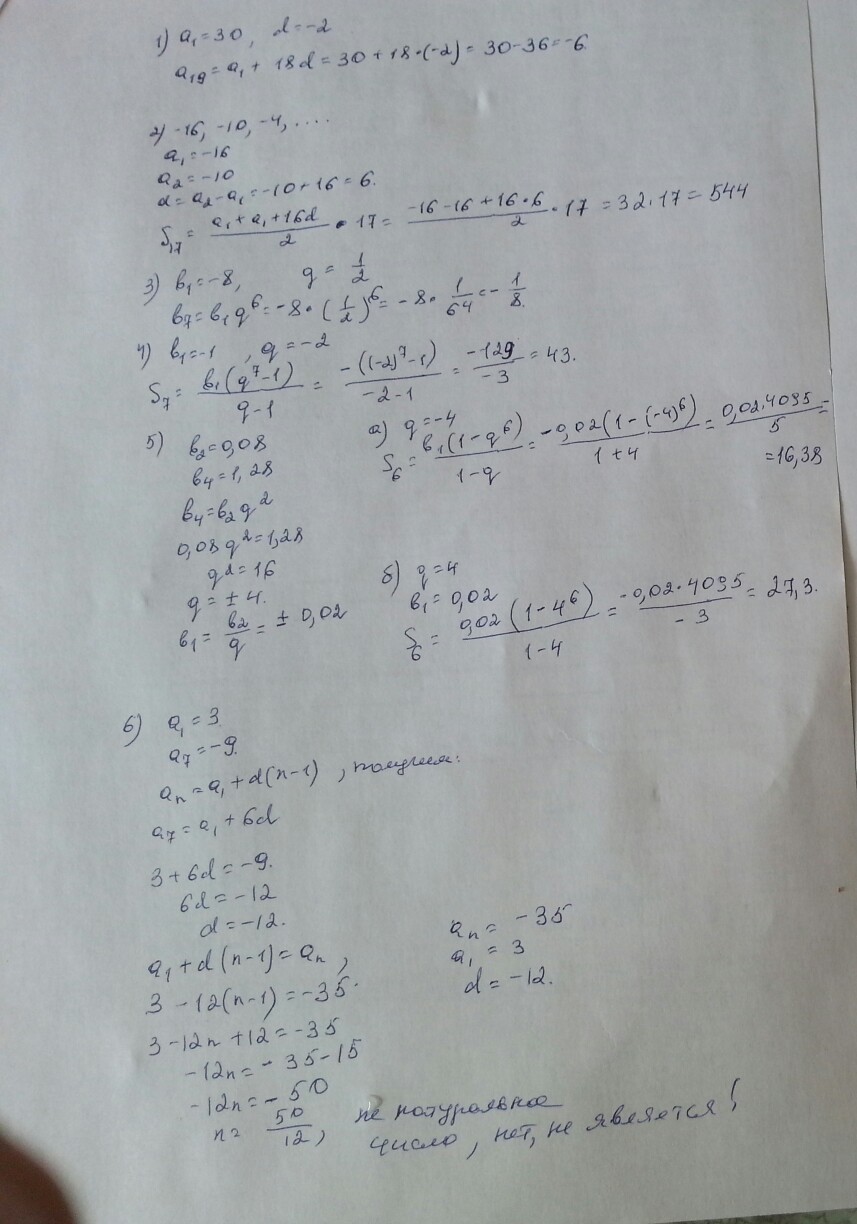 1) a₁=30, d=-2
a₁₉=a₁+ 18d=30+18·(-2)= 30-36=-6.
2) -16, -10, -4, ....
a₁=-16
a₂=-10
d=a₂-a₁=-10+16=6.
S₁₇= (a₁+a₁+16d)/2 · 17= (-16-16+16·6)/2 · 17 =32·17=544
3) b₁=-8, q= 1/2
b₇=b₁q⁶=-8·(1/2)⁶=-8· 1/64=- 1/8.
4) b₁=-1, q=-2
S₇= b₁(q⁷-1)/(q-1) = -((-2)⁷-1)/(-2-1) = -129/-3 =43.
5) b₂=0,08
b₄=1,28
b₄=b₂q²
0,08q²=1,28
q²=16
q=±4.
b₁= b₂/q =± 0,02
а) q=-4
S₆= b₁(1-q⁶)/(1-q) = -0,02(1-(-4)⁶)/(1+4) = 0,02·4095/5 =
=16,38
б) q=4
b₁=0,02
S₆= 0,02(1-4⁶)/(1-4) = -0,02·4095/-3 = 27,3.
6) a₁=3
a₇=-9.
aₙ=a₁+d(n-1), получим:
a₇=a₁+6d
3+6d=-9.
6d=-12
d=-12.
a₁+d(n-1)=aₙ,
3-12(n-1)=-35.
3-12n+12=-35
-12n=-35-15
-12n=-50
n= 50/12, не натуральное
число, нет, не является!
aₙ= -35
a₁ = 3
d=-12.